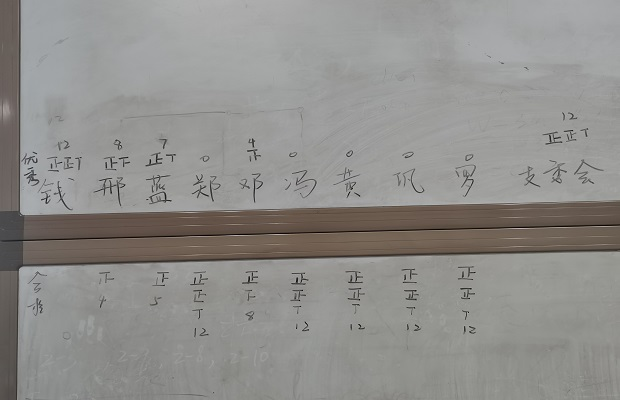 12 8 7 0 4 0 0 0 0 12
优秀 正正T 正下 正T 正正T
钱 邢 蓝 郑 邓 冯 黄 巩 男 支委会
合格 正 正 正 正 正 正 正 正
正 下 正 正 正 正
T T T T T
4 5 12 8 12 12 12 12